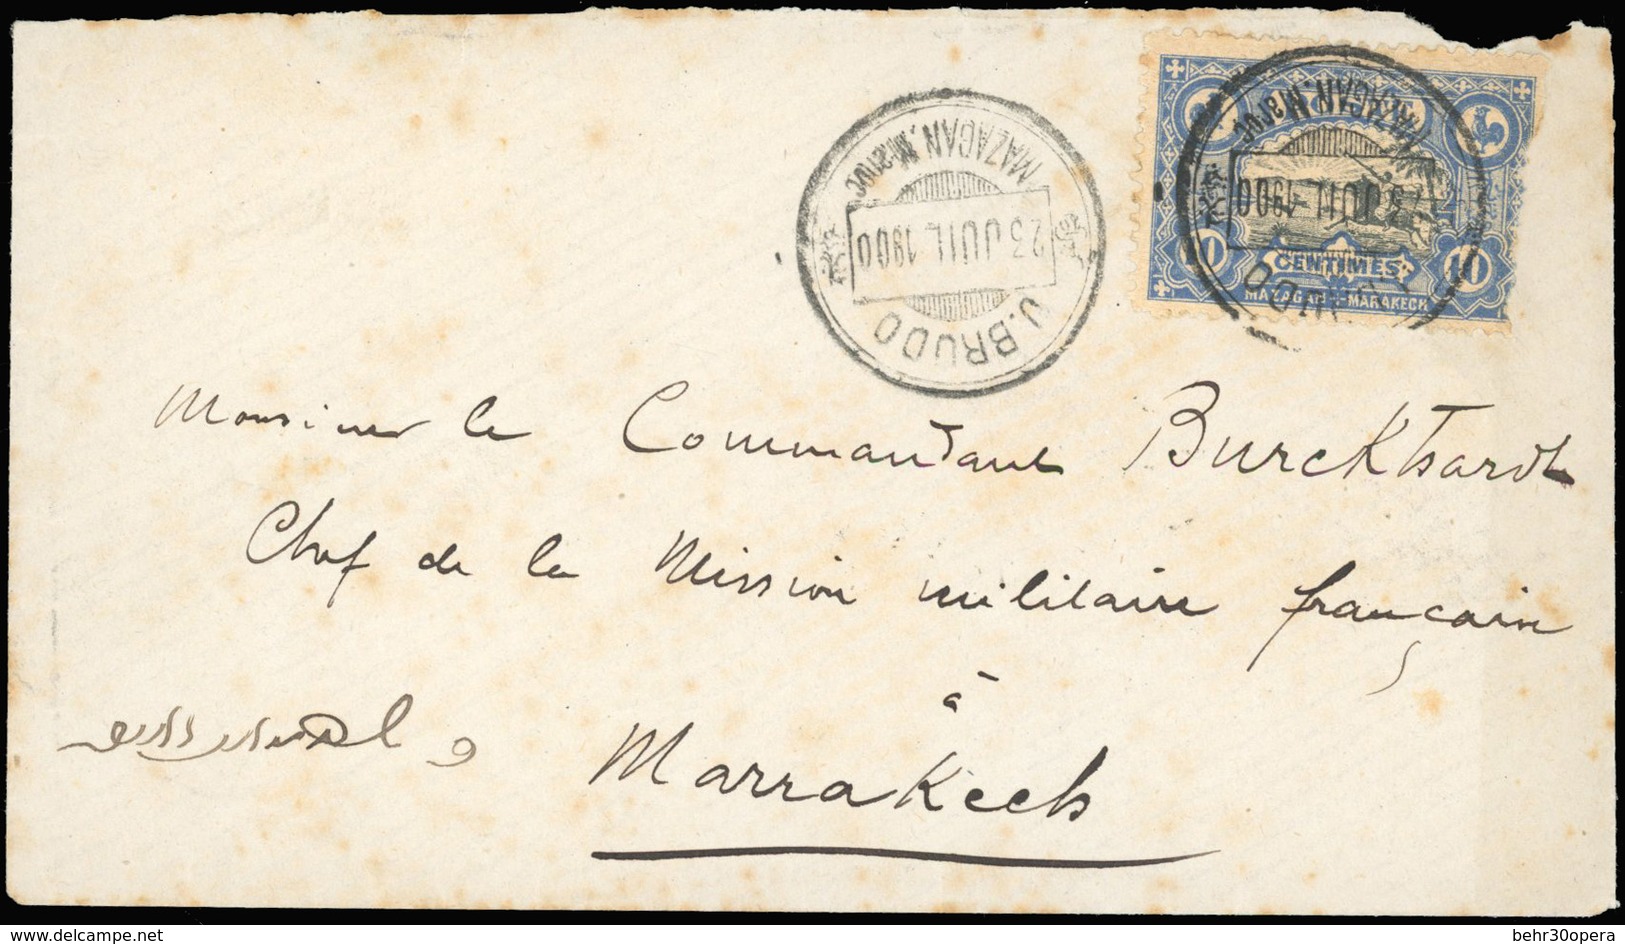 MAZAGAN. Maroc
23 JUIL 1900
J. BRUDO
MAZAGAN. Maroc
JUIL 1900
10 CENTIMES 10
MAZAGAN - MARAKECH
Monsieur le Commandant Burckhardt
Chef de la Mission militaire française
à
Marrakech
www.delcampe.net
behr30opera